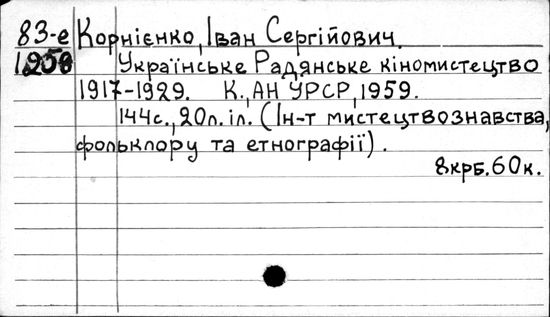 83-е Корнієнко, Іван Сергійович.
Українське Радянське кіномистецтво
1917-1929. К., АН УРСР, 1959.
144с., 20л. іл. (Ін-т мистецтвознавства,
фольклору та етнографії).
8крб. 60к.